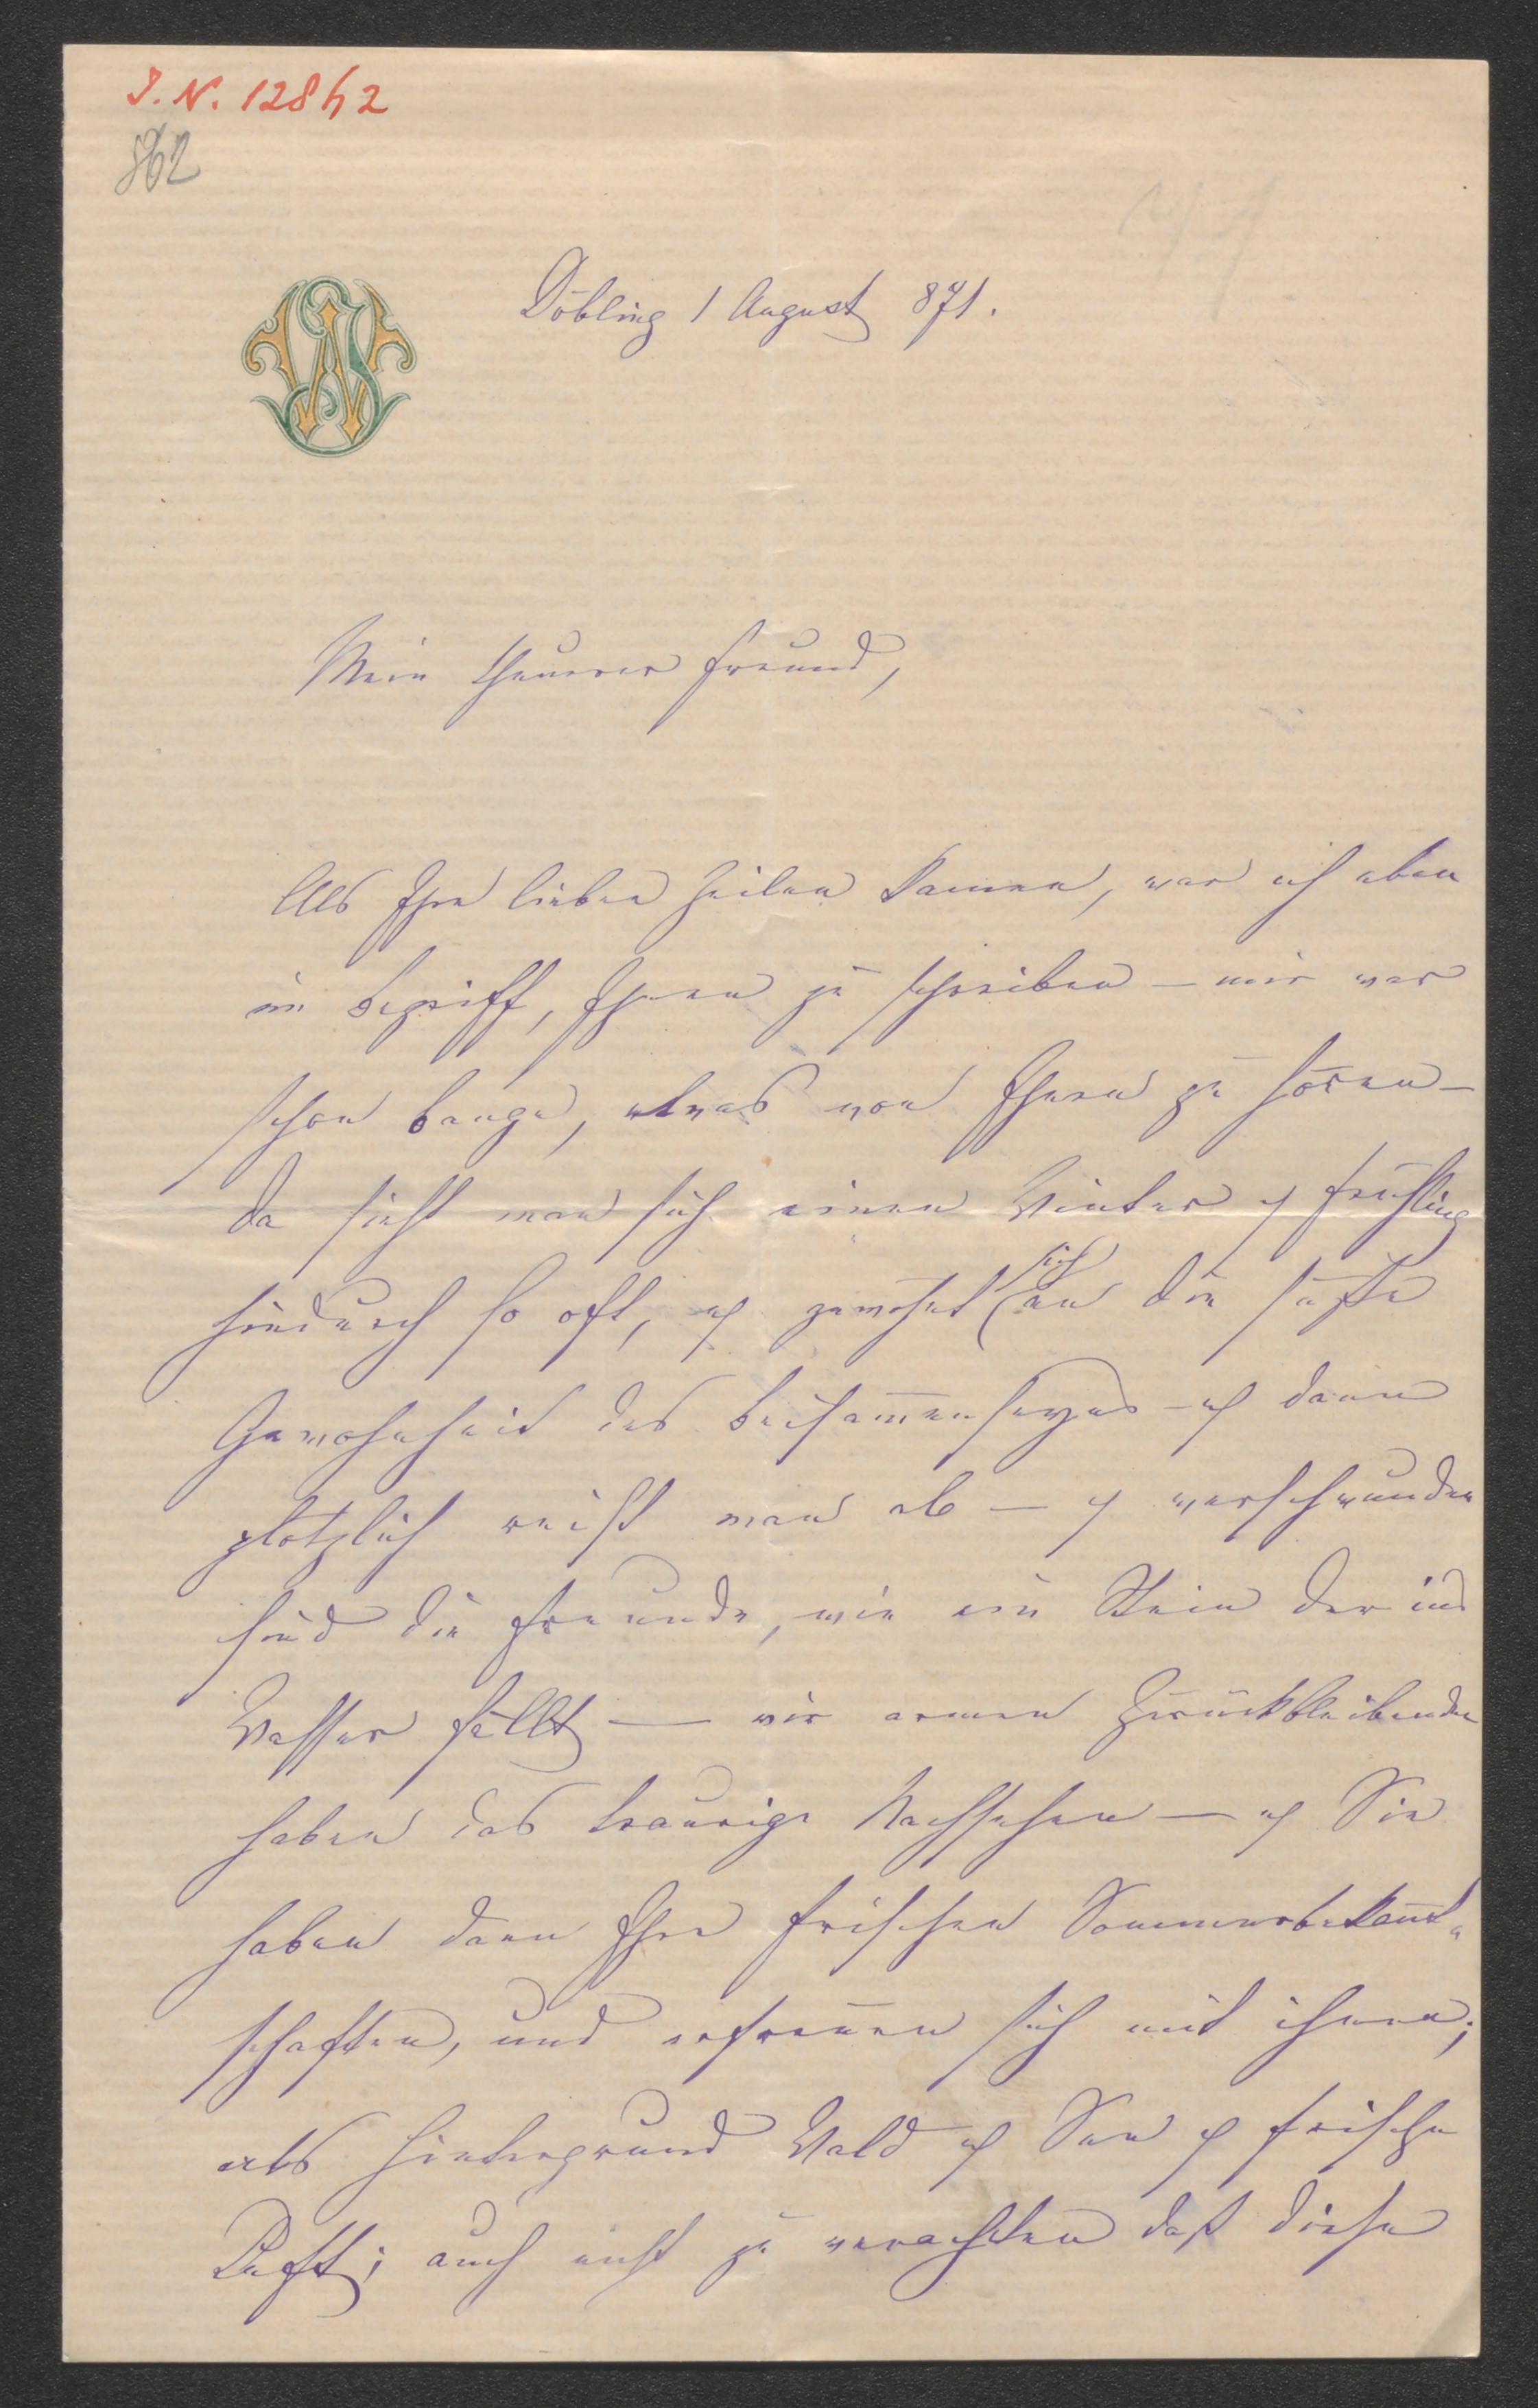 I. N. 12862
862
Döbling 1 August 871.
Mein theurer Freund,
Als Ihre lieben Zeilen kamen, war ich eben
im Begriff, Ihnen zu schreiben – mir war
schon bange, etwas von Ihnen zu hören –
da sieht man sich einen Winter u Frühling
hindurch so oft, u gewöhnt sich an die süße
Gewohnheit des Beisam̅enseyns – u dann
plötzlich reist man ab – u verschwunden
sind die Freunde, wie ein Stein der ins
Wasser fällt – wir armen Zurückbleibenden
haben das traurige Nachsehen – u Sie
haben dann Ihre frischen Sommerbekannt„
schaften, und erfreuen sich mit ihnen;
als Hintergrund Wald u See u frische
Luft; auch nicht zu verachten daß diese